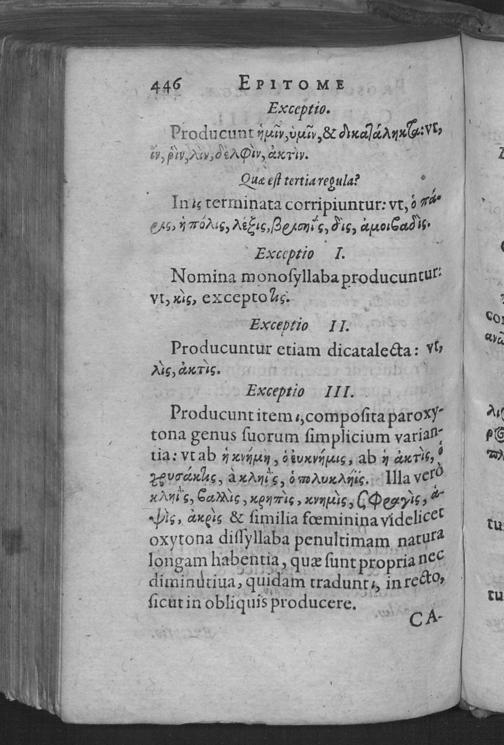 446 EPITOME
Exceptio.
Producunt ἡμῖν, ὑμῖν, & δικατάληκτα: vt,
ἲν, ῥὶν, λὶν, δελφὶν, ἀκτὶν.
Quæ est tertia regula?
In ις terminata corripiuntur: vt, ὁ πά-
ρις, ἡ πόλις, λέξις, βρισηῒς, δὶς, ἀμοιβαδὶς.
Exceptio I.
Nomina monosyllaba producuntur:
vt, κὶς, excepto τὶς.
Exceptio II.
Producuntur etiam dicatalecta: vt,
λὶς, ἀκτὶς.
Exceptio III.
Producunt item ι, composita paroxy-
tona genus suorum simplicium varian-
tia: vt ab ἡ κνήμη, ὁ εὐκνήμις, ab ἡ ἀκτὶς, ὁ
χρυσάκτις, à κληῒς, ὁ πολυκλήϊς. Illa verò
κληῒς, βαλβὶς, κρηπὶς, κνημὶς, σφραγὶς, ἁ-
ψὶς, ἀκρὶς & similia fœminina videlicet
oxytona dissyllaba penultimam natura
longam habentia, quæ sunt propria nec
diminutiua, quidam tradunt ι, in recto,
sicut in obliquis producere.
CA-